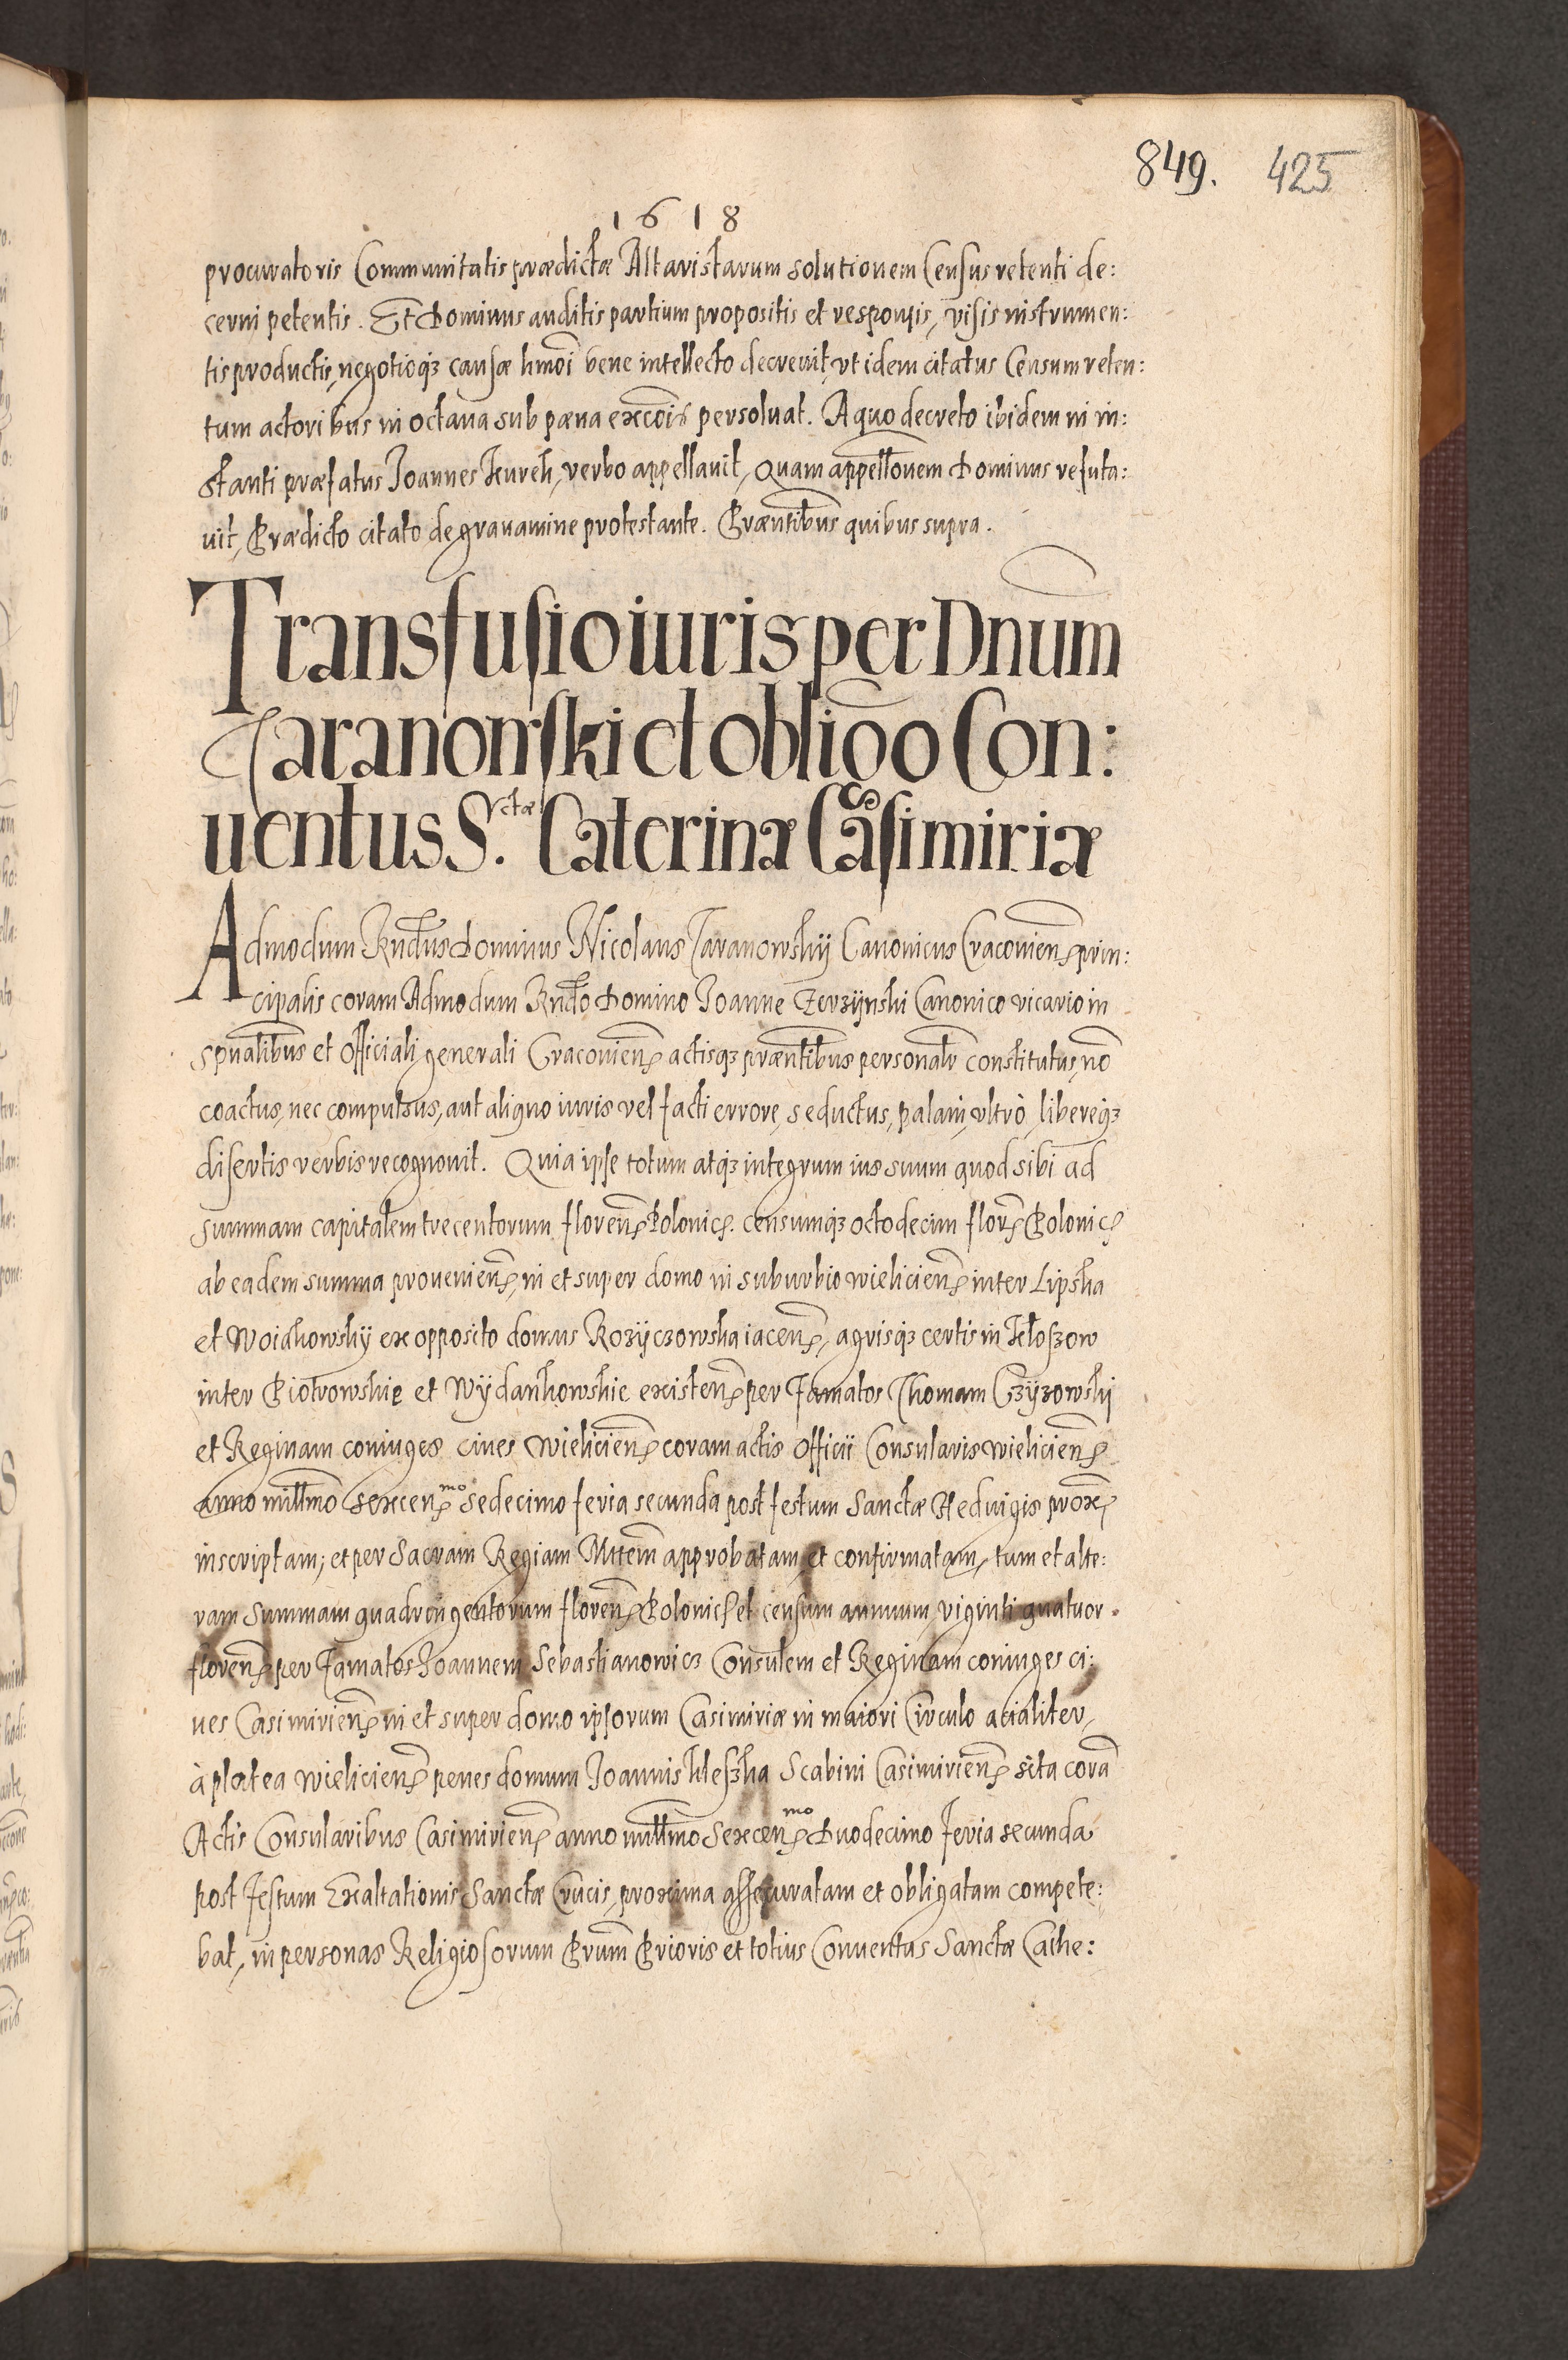 849. 425
1618
procuratoris Communitatis prædictæ Altaristarum solutionem Census retenti de:
cerni petentis. Et Dominus auditis partium propositis et responsis, visis instrumen:
tis productis, negotioq3 causæ hmōi bene intellecto decrevit, vt idem citatus Censum reten:
tum actoribus in octava sub pæna excōis persoluat. A quo decreto ibidem in in:
stanti præfatus Joannes verbo appellavit, Quam appellōnem Dominus refuta:
uit, Prædicto citato de gravamine protestante. Præntibus quibus supra.
Transfusio iuris per Dnum
Taranowski et obligo Con:
uentus S.ctæ Caterinæ Casimiriæ
Admodum Rndus Dominus Nicolaus Taranowskÿ Canonicus Cracovien prin:
cipalis coram Admodum Rndo Domino Joanne Zerzÿnski Canonico vicario in
spualibus et Officiali generali Cracovien actisq3 præntibus personalr constitutus, nō
coactus, nec compulsus, aut aliquo iuris vel facti errore, seductus, palam, vltrò, libereq3
disertis verbis recognovit. Quia ipse totum atq3 integrum ius suum quod sibi ad
summam capitalem trecentorum floren Polonic. censumq3 octodecim flor Polonic
ab eadem summa provenien, in et super domo in suburbio wielicien inter Lipska
et Woidkowskÿ ex opposito domus Rozÿczowska iacen, agrisq3 certis in Kłoszow
inter Piotrowskie et Wÿdankowskie existen per Famatos Thomam Czÿzowski
et Reginam coniuges ciues wielicien coram actis Officii Consularis wielicien
anno millmo sexcen.mo sedecimo feria secunda post festum Sanctæ Heduigis prox
inscriptam; et per Sacram Regiam Mttem approbatam et confirmatam, tum et alte:
ram summam quadringentorum floren Polonic et censum annuum, viginti quatuor
floren per Famatos Joannem Sebastianowicz Consulem et Reginam coniuges ci:
ues Casimirien in et super domo ipsorum Casimiriæ in maiori Circulo acialiter,
à platea wielicien penes domum Joannis Scabini Casimirien sita corā
Actis Consularibus Casimirien anno millmo Sexcen.mo Duodecimo Feria secunda
post Festum Exaltationis Sanctæ Crucis, proxima assecuratam et obligatam compete:
bat, in personas Religiosorum Prum Prioris et totius Conuentus Sanctæ Cathe: